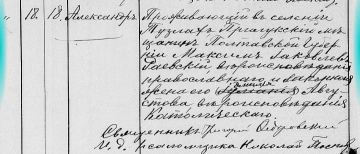 " 18. 18. Александръ Проживающій въ селеніи
Тузлахъ мѣ-
щанинъ Полтавской Губер-
ніи Максимъ Іаковлевъ
Раевскій вѣроисповѣданія
православнаго и законная
жена его Авгу-
стова вѣроисповѣданія
Католическаго.
Священникъ
и. д. псаломщика Николай